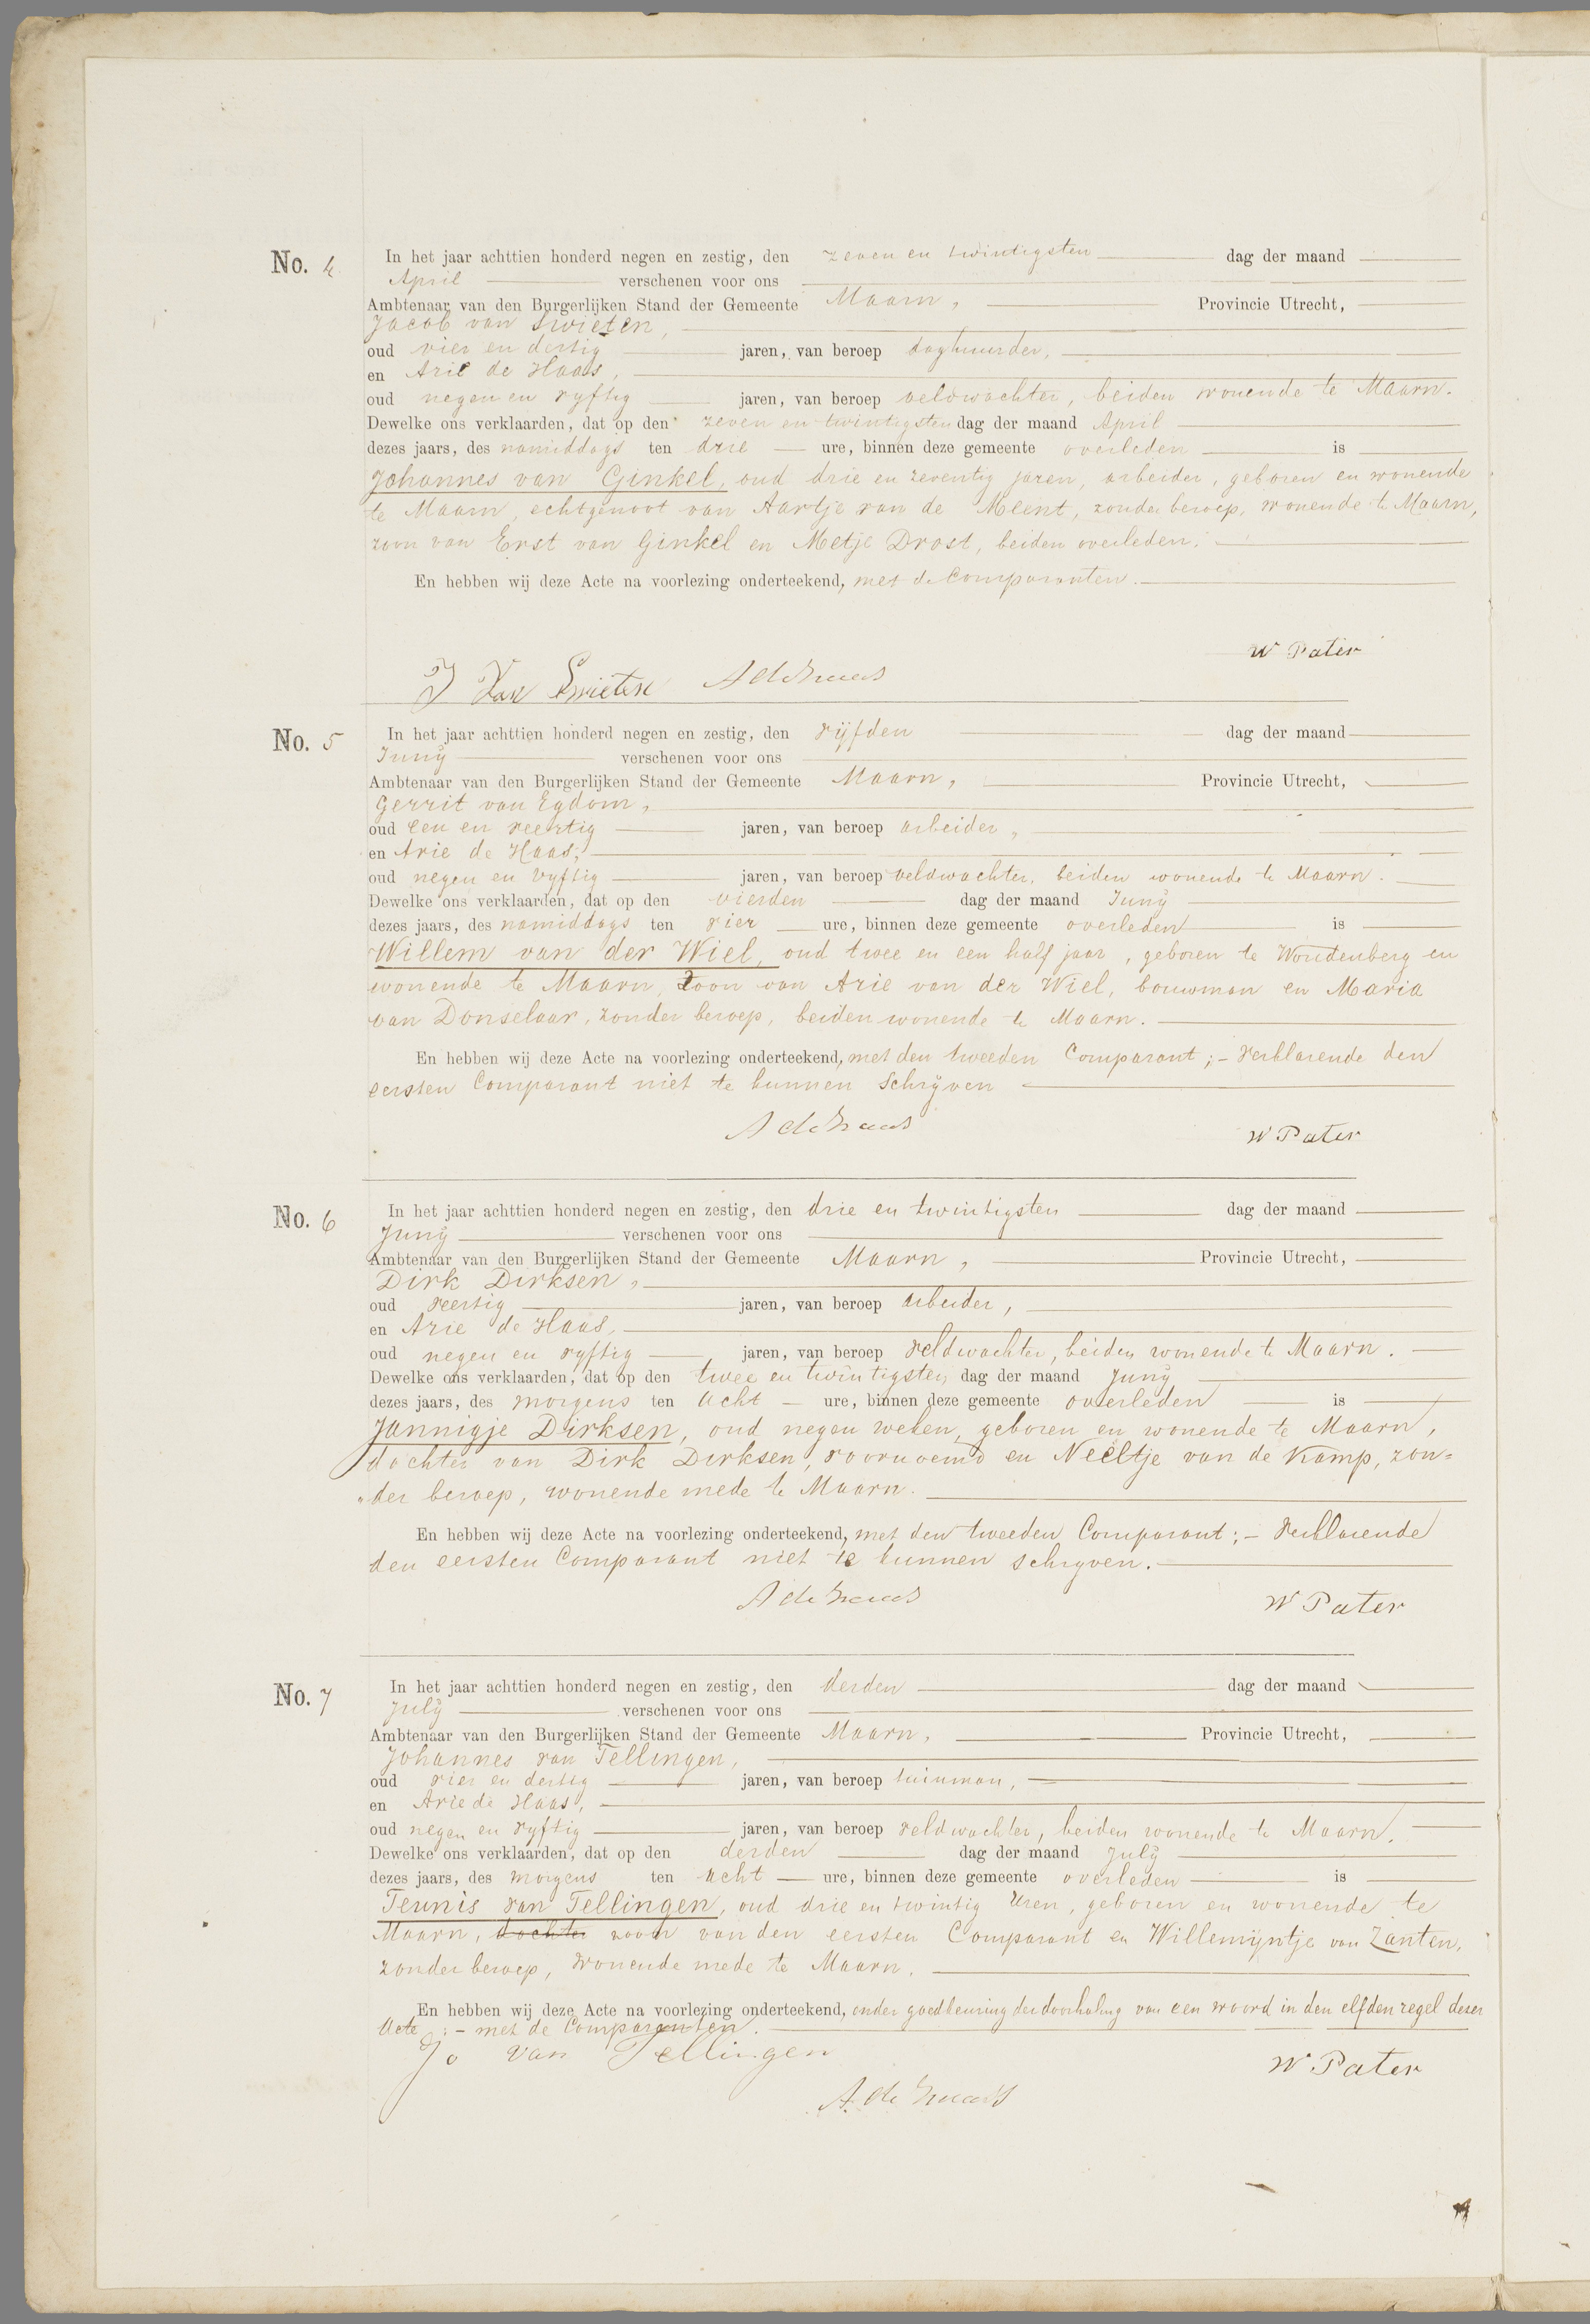 No. 4 In het jaar achttien honderd negen en zestig, den zeven en twintigsten dag der maand
April verschenen voor ons
Ambtenaar van den Burgerlijken Stand der Gemeente Maarn, Provincie Utrecht,
Jacob van Swieten,
oud vier en dertig jaren, van beroep daghuurder,
en Arie de Haas,
oud negen en vyftig jaren, van beroep veldwachter, beiden wonende te Maarn.
Dewelke ons verklaarden, dat op den zeven en twintigsten dag der maand April
dezes jaars, des namiddags ten drie ure, binnen deze gemeente overleden is
Johannes van Ginkel, oud drie en zeventig jaren, arbeider, geboren en wonende
te Maarn, echtgenoot van Aartje van de Meent, zonder beroep, wonende te Maarn,
zoon van Erst van Ginkel en Metje Drost, beiden overleden.
En hebben wij deze Acte na voorlezing onderteekend, met de Comparanten.
W Pater
J Van Swieten A de Haas
No. 5 In het jaar achttien honderd negen en zestig, den vijfden dag der maand
Juny verschenen voor ons
Ambtenaar van den Burgerlijken Stand der Gemeente Maarn, Provincie Utrecht,
Gerrit van Egdom,
oud een en veertig jaren, van beroep arbeider,
en Arie de Haas,
oud negen en vyftig jaren, van beroep veldwachter, beiden wonende te Maarn.
Dewelke ons verklaarden, dat op den vierden dag der maand Juny
dezes jaars, des namiddags ten vier ure, binnen deze gemeente overleden is
Willem van der Wiel, oud twee en een half jaar, geboren te Woudenberg en
wonende te Maarn, zoon van Arie van der Wiel, bouwman en Maria
van Donselaar, zonder beroep, beiden wonende te Maarn.
En hebben wij deze Acte na voorlezing onderteekend, met den tweeden Comparant; - verklarende den
eersten Comparant niet te kunnen schryven
A de Haas W Pater
No. 6 In het jaar achttien honderd negen en zestig, den drie en twintigsten dag der maand
Juny verschenen voor ons
Ambtenaar van den Burgerlijken Stand der Gemeente Maarn, Provincie Utrecht,
Dirk Dirksen,
oud veertig jaren, van beroep arbeider,
en Arie de Haas,
oud negen en vyftig jaren, van beroep veldwachter, beiden wonende te Maarn.
Dewelke ons verklaarden, dat op den twee en twintigsten dag der maand Juny
dezes jaars, des morgens ten acht ure, binnen deze gemeente overleden is
Jannigje Dirksen, oud negen weken, geboren en wonende te Maarn,
dochter van Dirk Dirksen, voornoemd en Neeltje van de Kamp, zon=
der beroep, wonende mede te Maarn.
En hebben wij deze Acte na voorlezing onderteekend, met den tweeden Comparant; - verklarende
den eersten Comparant niet te kunnen schryven.
A de Haas W Pater
No. 7 In het jaar achttien honderd negen en zestig, den derden dag der maand
July verschenen voor ons
Ambtenaar van den Burgerlijken Stand der Gemeente Maarn, Provincie Utrecht,
Johannes van Tellingen,
oud vier en dertig jaren, van beroep tuinman,
en Arie de Haas,
oud negen en vyftig jaren, van beroep veldwachter, beiden wonende te Maarn.
Dewelke ons verklaarden, dat op den derden dag der maand July
dezes jaars, des morgens ten acht ure, binnen deze gemeente overleden is
Teunis van Tellingen, oud drie en twintig uren, geboren en wonende te
Maarn, dochter zoon van den eersten Comparant en Willemyntje van Zanten,
zonder beroep, wonende mede te Maarn.
En hebben wij deze Acte na voorlezing onderteekend, onder goedkeuring der doorhaling van een woord in den elfden regel dezer
Acte; - met de Comparanten.
Jo van Tellingen W Pater
A. de Haas